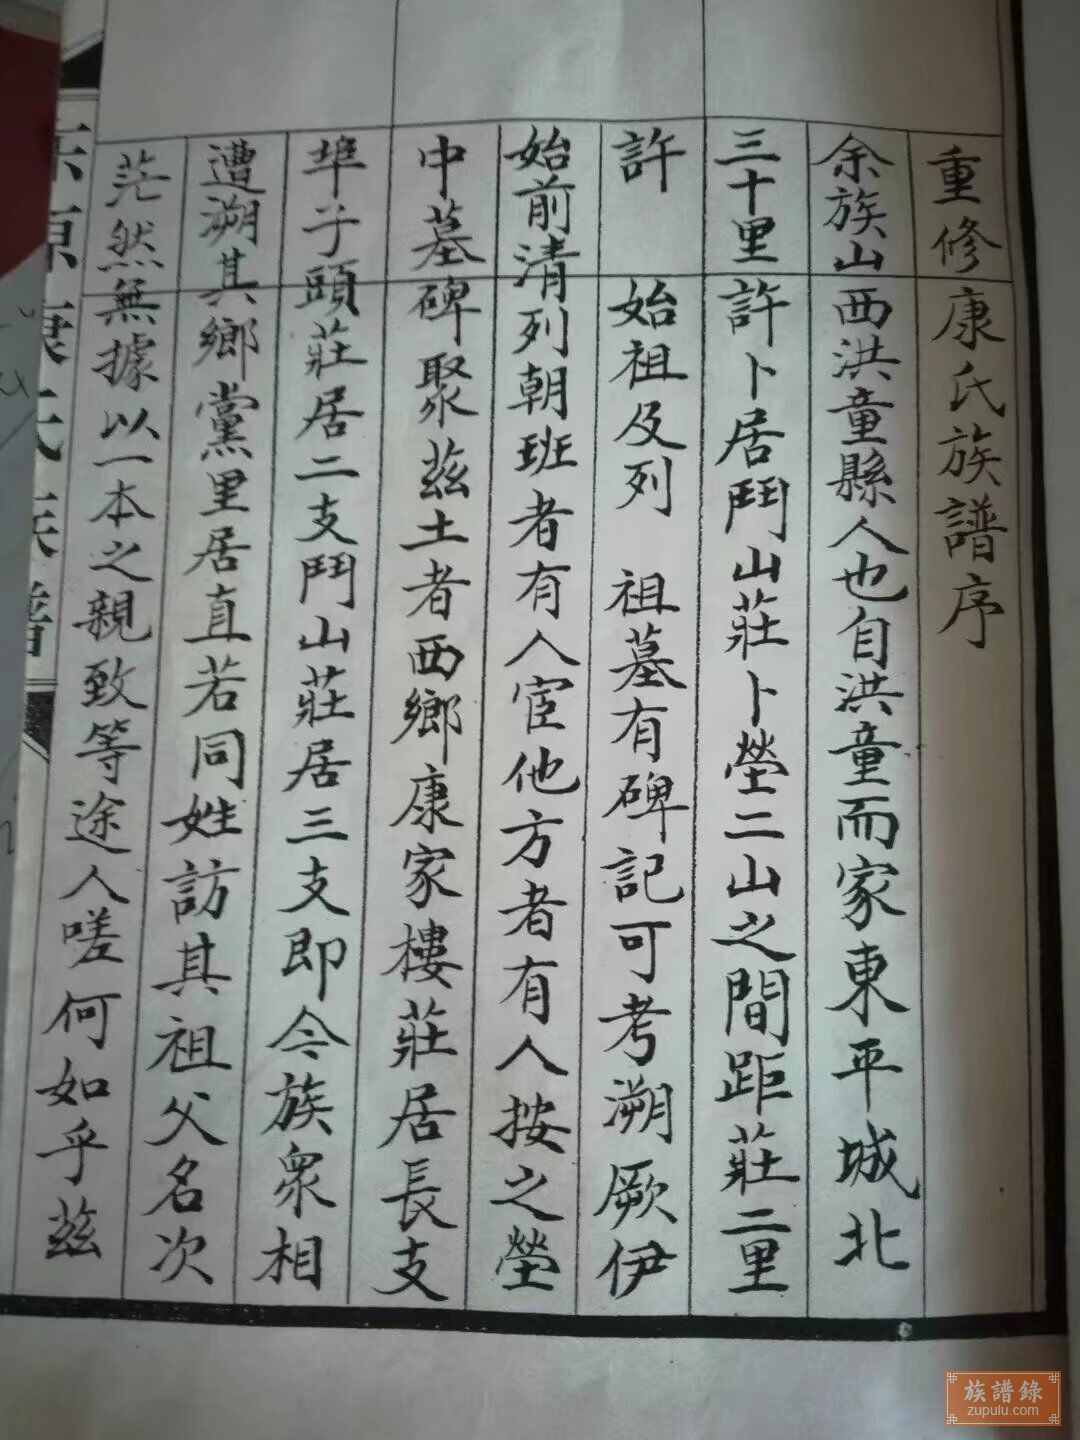 重修康氏族譜序
余族山西洪童縣人也自洪童而家東平城北
三十里許卜居鬥山莊卜塋二山之間距莊二里
許　始祖及列　祖墓有碑記可考溯厥伊
始前清列朝班者有人宦他方者有人按之塋
中墓碑聚茲土者西鄉康家樓莊居長支
埠子頭莊居二支鬥山莊居三支即今族衆相
遭溯其鄉黨里居直若同姓訪其祖父名次
茫然無據以一本之親致等途人嗟何如乎茲
康氏族譜
族譜錄
zupulu.com